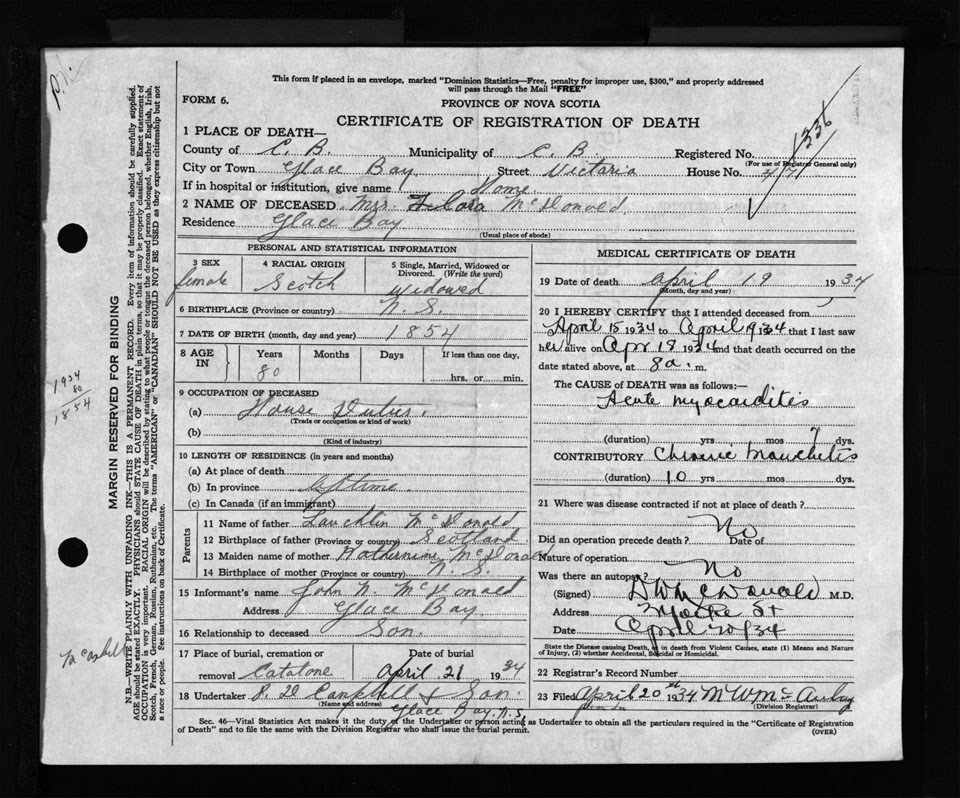 This form if placed in an envelope, marked "Dominion Statistics—Free, penalty for improper use, $300," and properly addressed
will pass through the Mail "FREE"
FORM 6.
PROVINCE OF NOVA SCOTIA
CERTIFICATE OF REGISTRATION OF DEATH
1336
1 PLACE OF DEATH—
County of C. B. Municipality of C. B. Registered No.
(For use of Registrar General only)
City or Town Glace Bay Street Victoria House No. 47
If in hospital or institution, give name Home
2 NAME OF DECEASED Mrs. Flora McDonald
Residence Glace Bay
(Usual place of abode)
PERSONAL AND STATISTICAL INFORMATION
3 SEX
female
4 RACIAL ORIGIN
Scotch
5 Single, Married, Widowed or
Divorced. (Write the word)
Widowed
6 BIRTHPLACE (Province or country) N. S.
7 DATE OF BIRTH (month, day and year) 1854
8 AGE IN
Years Months Days If less than one day,
80 hrs. or min.
9 OCCUPATION OF DECEASED
(a) House Duties.
(Trade or occupation or kind of work)
(b)
(Kind of industry)
10 LENGTH OF RESIDENCE (in years and months)
(a) At place of death
(b) In province Liftime
(c) In Canada (if an immigrant)
Parents
11 Name of father Lauchlin McDonald
12 Birthplace of father (Province or country) Scotland
13 Maiden name of mother McDonald
14 Birthplace of mother (Province or country) N. S.
15 Informant's name John N. McDonald
Address Glace Bay
16 Relationship to deceased Son.
17 Place of burial, cremation or Date of burial
removal Catalone April 21 1934
18 Undertaker Campbell & Son.
(Name and address)
Glace Bay, N. S.
MEDICAL CERTIFICATE OF DEATH
19 Date of death April 19 1934
(Month, day and year)
20 I HEREBY CERTIFY that I attended deceased from
April 15 1934 to April 19 1934 that I last saw
her alive on Apr 18 1934 and that death occurred on the
date stated above, at 8 a. m.
The CAUSE OF DEATH was as follows:—
Acute myocarditis
(duration) yrs mos 7 dys.
CONTRIBUTORY Chronic Bronchitis
(duration) 10 yrs mos dys.
21 Where was disease contracted if not at place of death?
Did an operation precede death? No Date of
Nature of operation
Was there an autopsy? No
(Signed) McDonald M.D.
Address St
Date April 20/34
State the Disease causing Death, or in death from Violent Causes, state (1) Means and Nature
of Injury, (2) whether Accidental, Suicidal or Homicidal.
22 Registrar's Record Number
23 Filed April 20th 1934 M W McAulay
(Division Registrar)
Sec. 46—Vital Statistics Act makes it the duty of the Undertaker or person acting as Undertaker to obtain all the particulars required in the "Certificate of Registration
of Death" and to file the same with the Division Registrar who shall issue the burial permit.
(OVER)
MARGIN RESERVED FOR BINDING
N.B.—WRITE PLAINLY WITH UNFADING INK—THIS IS A PERMANENT RECORD. Every item of information should be carefully supplied.
AGE should be stated EXACTLY. PHYSICIANS should STATE CAUSE OF DEATH in plain terms, so that it may be properly classified. Exact statement of
OCCUPATION is very important. RACIAL ORIGIN will be described by stating to what people or tongue the deceased person belonged, whether English, Irish,
Scotch, French, German, Russian, Ruthenian, etc. The terms "AMERICAN" or "CANADIAN" SHOULD NOT BE USED as they express citizenship but not
a race or people. See instructions on back of Certificate.
1934
80
1854
McAskill